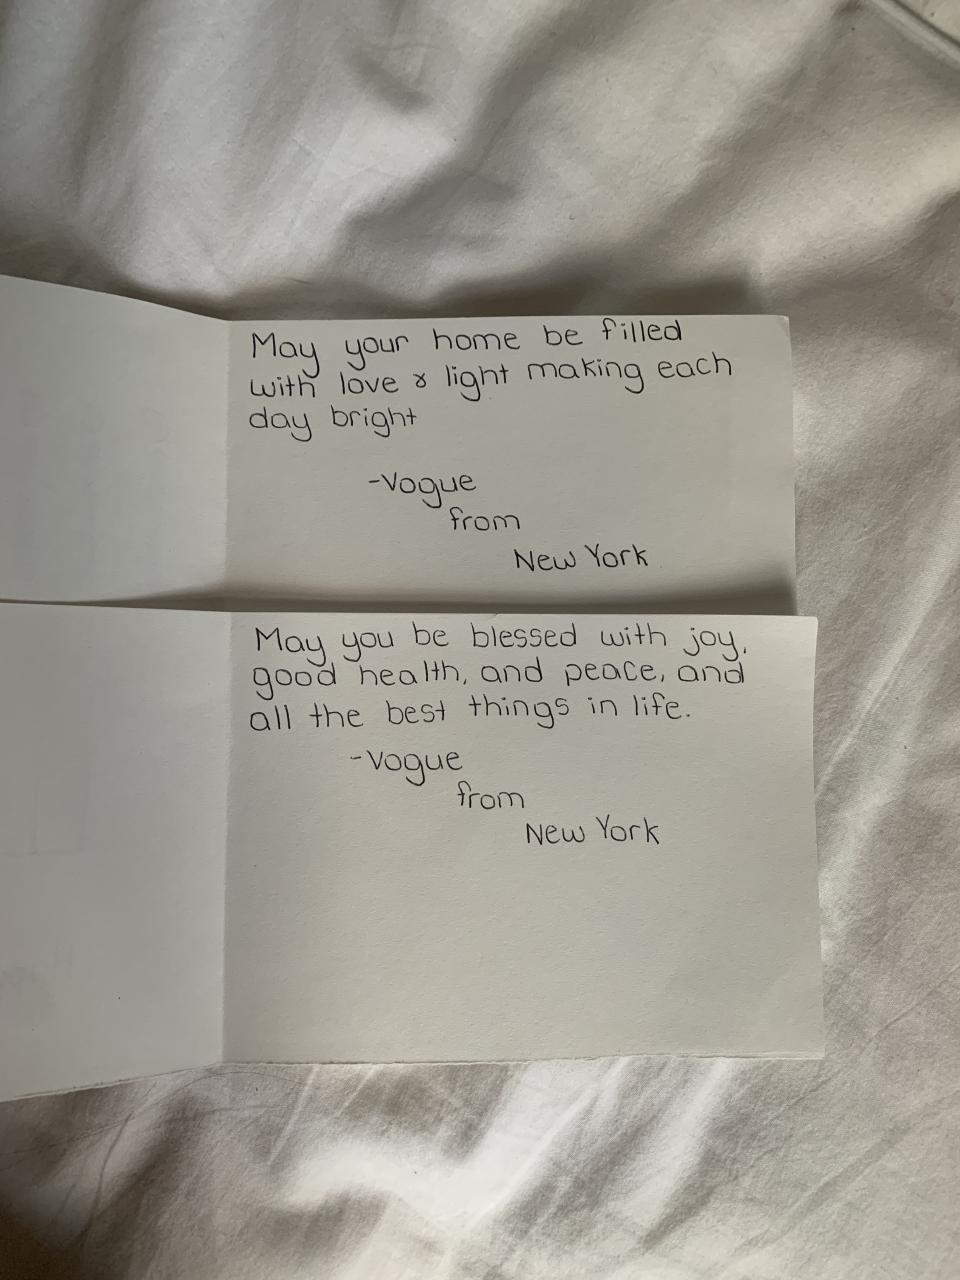 May your home be filled
with love & light making each
day bright
-Vogue
from
New York
May you be blessed with joy,
good health, and peace, and
all the best things in life.
-Vogue
from
New York